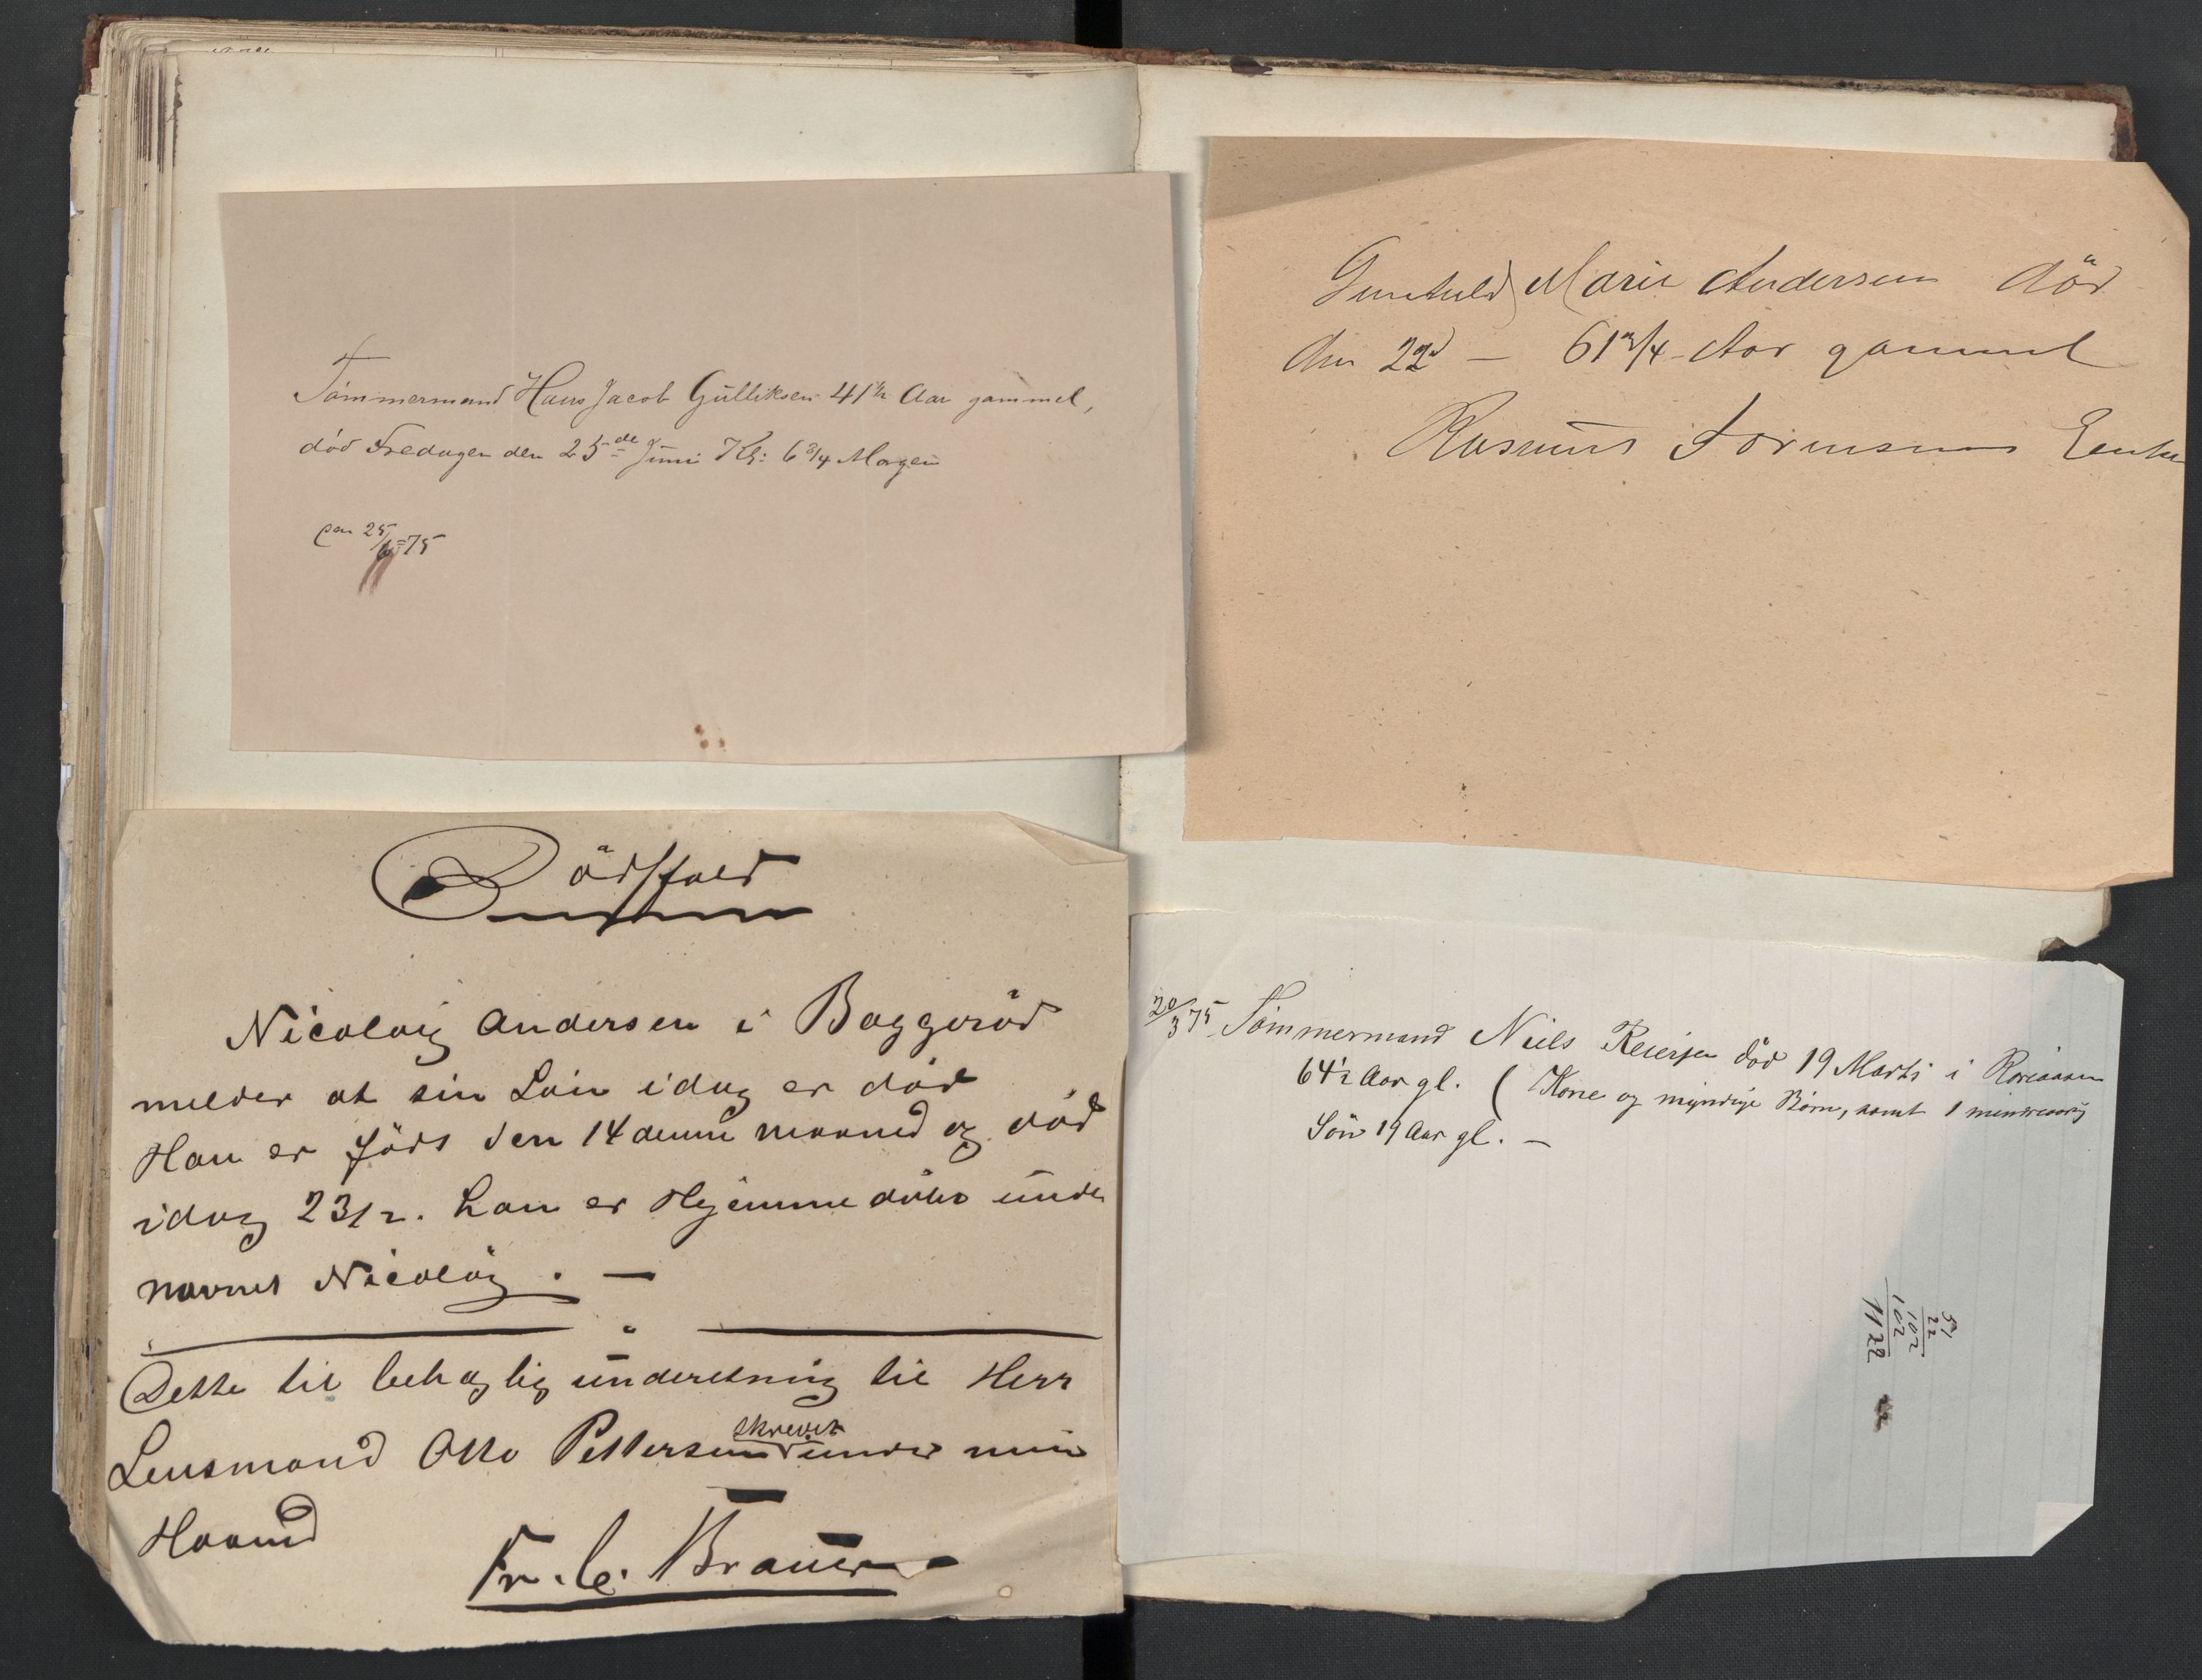 Tömmermand Hans Jacob Gulliksen 41½ Aar gammel,
död Fredagen den 25de Juni Kl: 6¾ Morgen
25/6=75
Dödsfald
Nicolaij Andersen i Baggeröd
melder at sin Sön idag er död
Han er föds den 14 denne maaned og död
idag 23/2. han er Hjemmedöbt under
navnet Nicolaij. —
Dette til behaglig underetning til Herr
Lensmand Otto Pettersen skrevet under min
Haand
Fr. C. Brauer
Gunhild Marie Andersen död
den 22d — 61¾ Aar gammel
Rasmus Sörensens Enke
20/3 75 Tömmermand Niels Reiersen död 19 Marts i
64½ Aar gl. (Kone og myndige Börn, samt 1 mindreaarig
Sön 19 Aar gl. —
51
22
102
102
1122